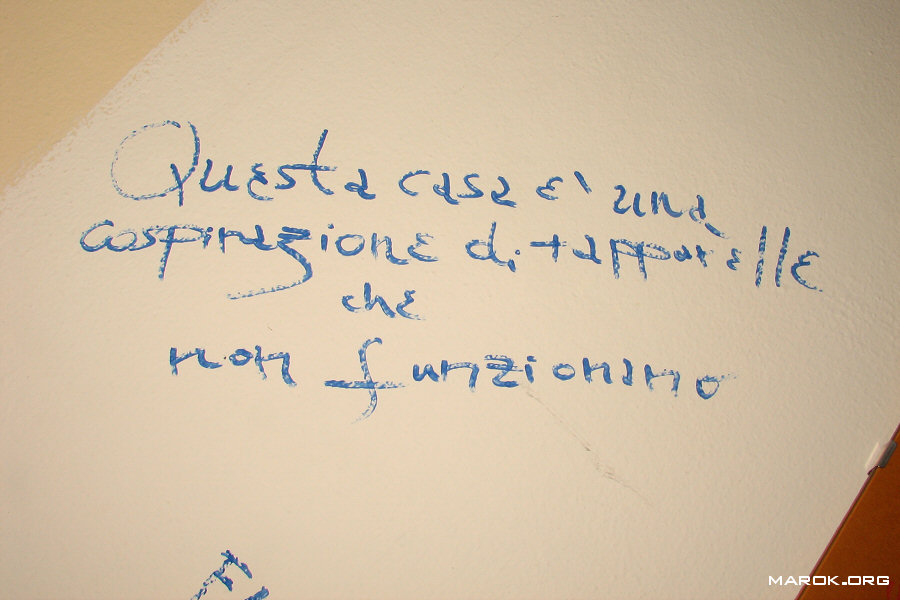 Questa casa è una
cospirazione di tapparelle
che
non funzionano
MAROK.ORG